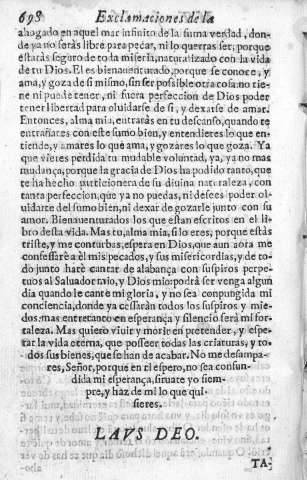 698 Exclamaciones de la
ahogado en aquel mar infinito de la suma verdad, don-
de ya no serás libre para pecar, ni lo querras ser; porque
estarás seguro de toda miseria, naturalizado con la vida
de tu Dios. El es bienauenturado, porque se conoce, y
ama, y goza de si mismo, sin ser possible otra cosa no tie-
ne ni puede tener, ni fuera perfeccion de Dios poder
tener libertad para oluidarse de si, y dexarse de amar.
Entonces, alma mia, entrarás en tu descanso, quando te
entrañares con este sumo bien, y entendieres lo que en-
tiende, y amares lo que ama, y gozáres lo que goza. Ya
que vieres pérdida tu mudable voluntad, ya, ya no mas
mudança, porque la gracia de Dios ha podido tanto, que
te ha hecho particionera de su diuina naturaleza, con
tanta perfeccion, que ya no puedas, ni desees poder ol-
uidarte del sumo bien, ni dexar de gozarle junto con su
amor. Bienauenturados los que estan escritos en el li-
bro desta vida. Mas tu, alma mia, si lo eres, porque estás
triste, y me conturbas, espera en Dios, que aun aora me
confessaré a él mis pecados, y sus misericordias, y de to-
do junto haré cantar de alabança con suspiros perpe-
tuos al Saluador mio, y Dios mio: podrá ser venga algun
dia quando le cante mi gloria, y no sea compungida mi
conciencia, donde ya cessarán todos los suspiros y mie-
dos: mas entretanto en esperança y silencio será mi for-
taleza. Mas quiero viuir y morir en pretender, y espe-
rar la vida eterna, que posseer todas las criaturas, y to-
dos sus bienes, que se han de acabar. No me desampa-
res, Señor, porque en ti espero, no sea confun-
dida mi esperança, siruate yo siem-
pre, y haz de mi lo que qui-
sieres.
LAVS DEO.
TA-